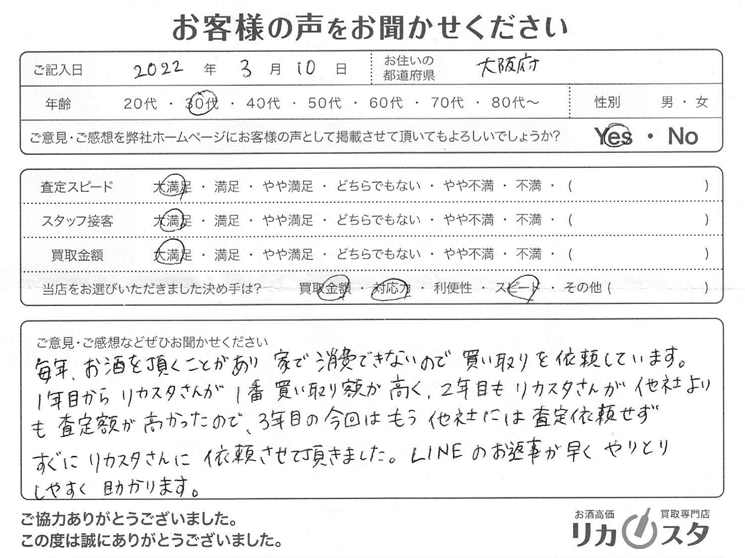 お客様の声をお聞かせください
ご記入日 2022 年 3 月 10 日 お住いの都道府県 大阪府
年齢 20代 ・ 30代 ・ 40代 ・ 50代 ・ 60代 ・ 70代 ・ 80代〜 性別 男 ・ 女
ご意見・ご感想を弊社ホームページにお客様の声として掲載させて頂いてもよろしいでしょうか? Yes ・ No
査定スピード 大満足 ・ 満足 ・ やや満足 ・ どちらでもない ・ やや不満 ・ 不満 ・ ( )
スタッフ接客 大満足 ・ 満足 ・ やや満足 ・ どちらでもない ・ やや不満 ・ 不満 ・ ( )
買取金額 大満足 ・ 満足 ・ やや満足 ・ どちらでもない ・ やや不満 ・ 不満 ・ ( )
当店をお選びいただきました決め手は? 買取金額 ・ 対応力 ・ 利便性 ・ スピード ・ その他 ( )
ご意見・ご感想などぜひお聞かせください
毎年、お酒を頂くことがあり 家で消費できないので 買い取りを依頼しています。
1年目から リカスタさんが 1番 買い取り額が 高く、2年目も リカスタさんが 他社より
も 査定額が 高かったので、3年目の今回は もう 他社には 査定依頼せず
すぐに リカスタさんに 依頼させて頂きました。LINEのお返事が早く やりとり
しやすく 助かります。
ご協力ありがとうございました。
この度は誠にありがとうございました。
お酒高価 買取専門店
リカスタ